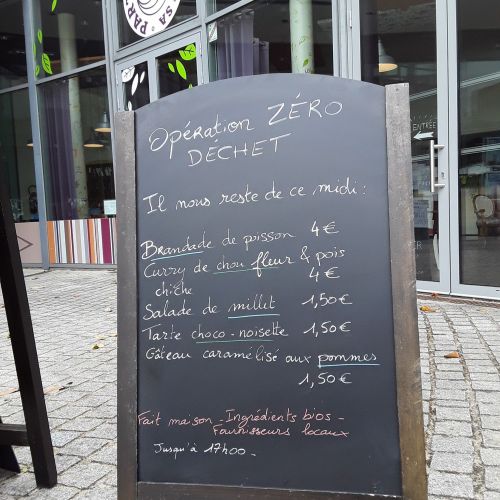 Opération ZÉRO
DÉCHET
Il nous reste de ce midi :
Brandade de poisson 4€
Curry de chou fleur & pois
chiche 4€
Salade de millet 1,50€
Tarte choco-noisette 1,50€
Gâteau caramélisé aux pommes
1,50€
Fait maison - Ingrédients bios -
Fournisseurs locaux
Jusqu'à 17h00.
ENTRÉE